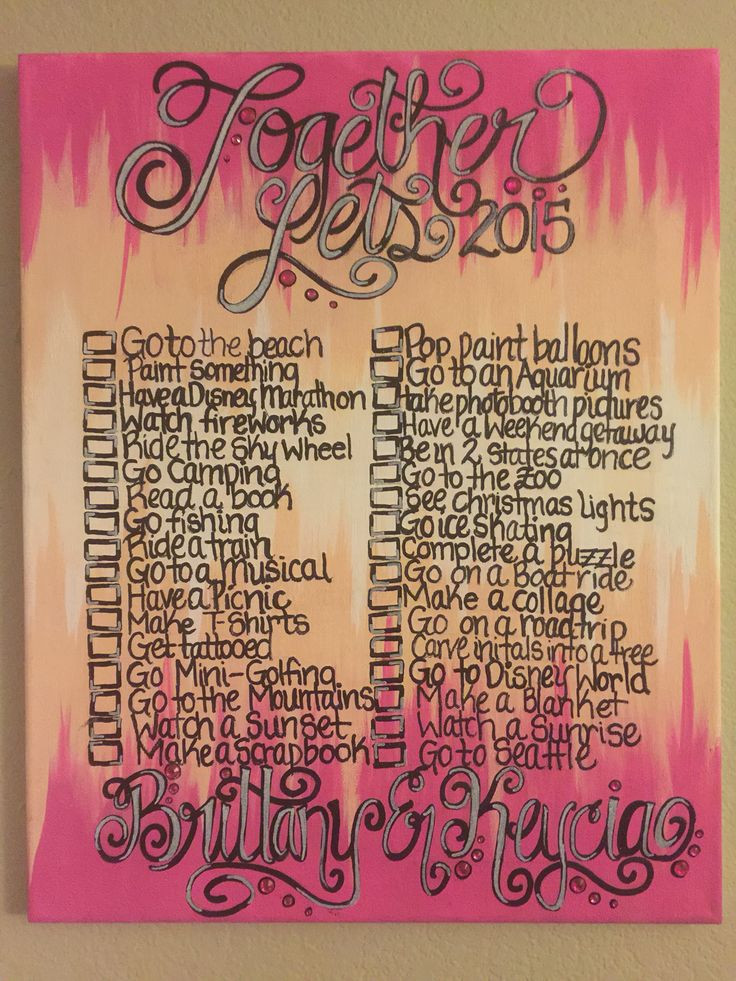 Together
Lets 2015
Go to the beach
Paint something
Have a Disney Marathon
Watch fireworks
Ride the Sky Wheel
Go Camping
Read a book
Go fishing
Ride a train
Go to a Musical
Have a Picnic
Make T-Shirts
Get tattooed
Go Mini-Golfing
Go to the Mountains
Watch a Sunset
Make a Scrapbook
Pop paint balloons
Go to an Aquarium
take photobooth pictures
Have a Weekend getaway
Be in 2 states at once
Go to the Zoo
See Christmas lights
Go ice skating
Complete a puzzle
Go on a Boat ride
Make a collage
Go on a road trip
Carve initals into a tree
Go to Disney World
Make a Blanket
Watch a Sunrise
Go to Seattle
Brittany & Keycia